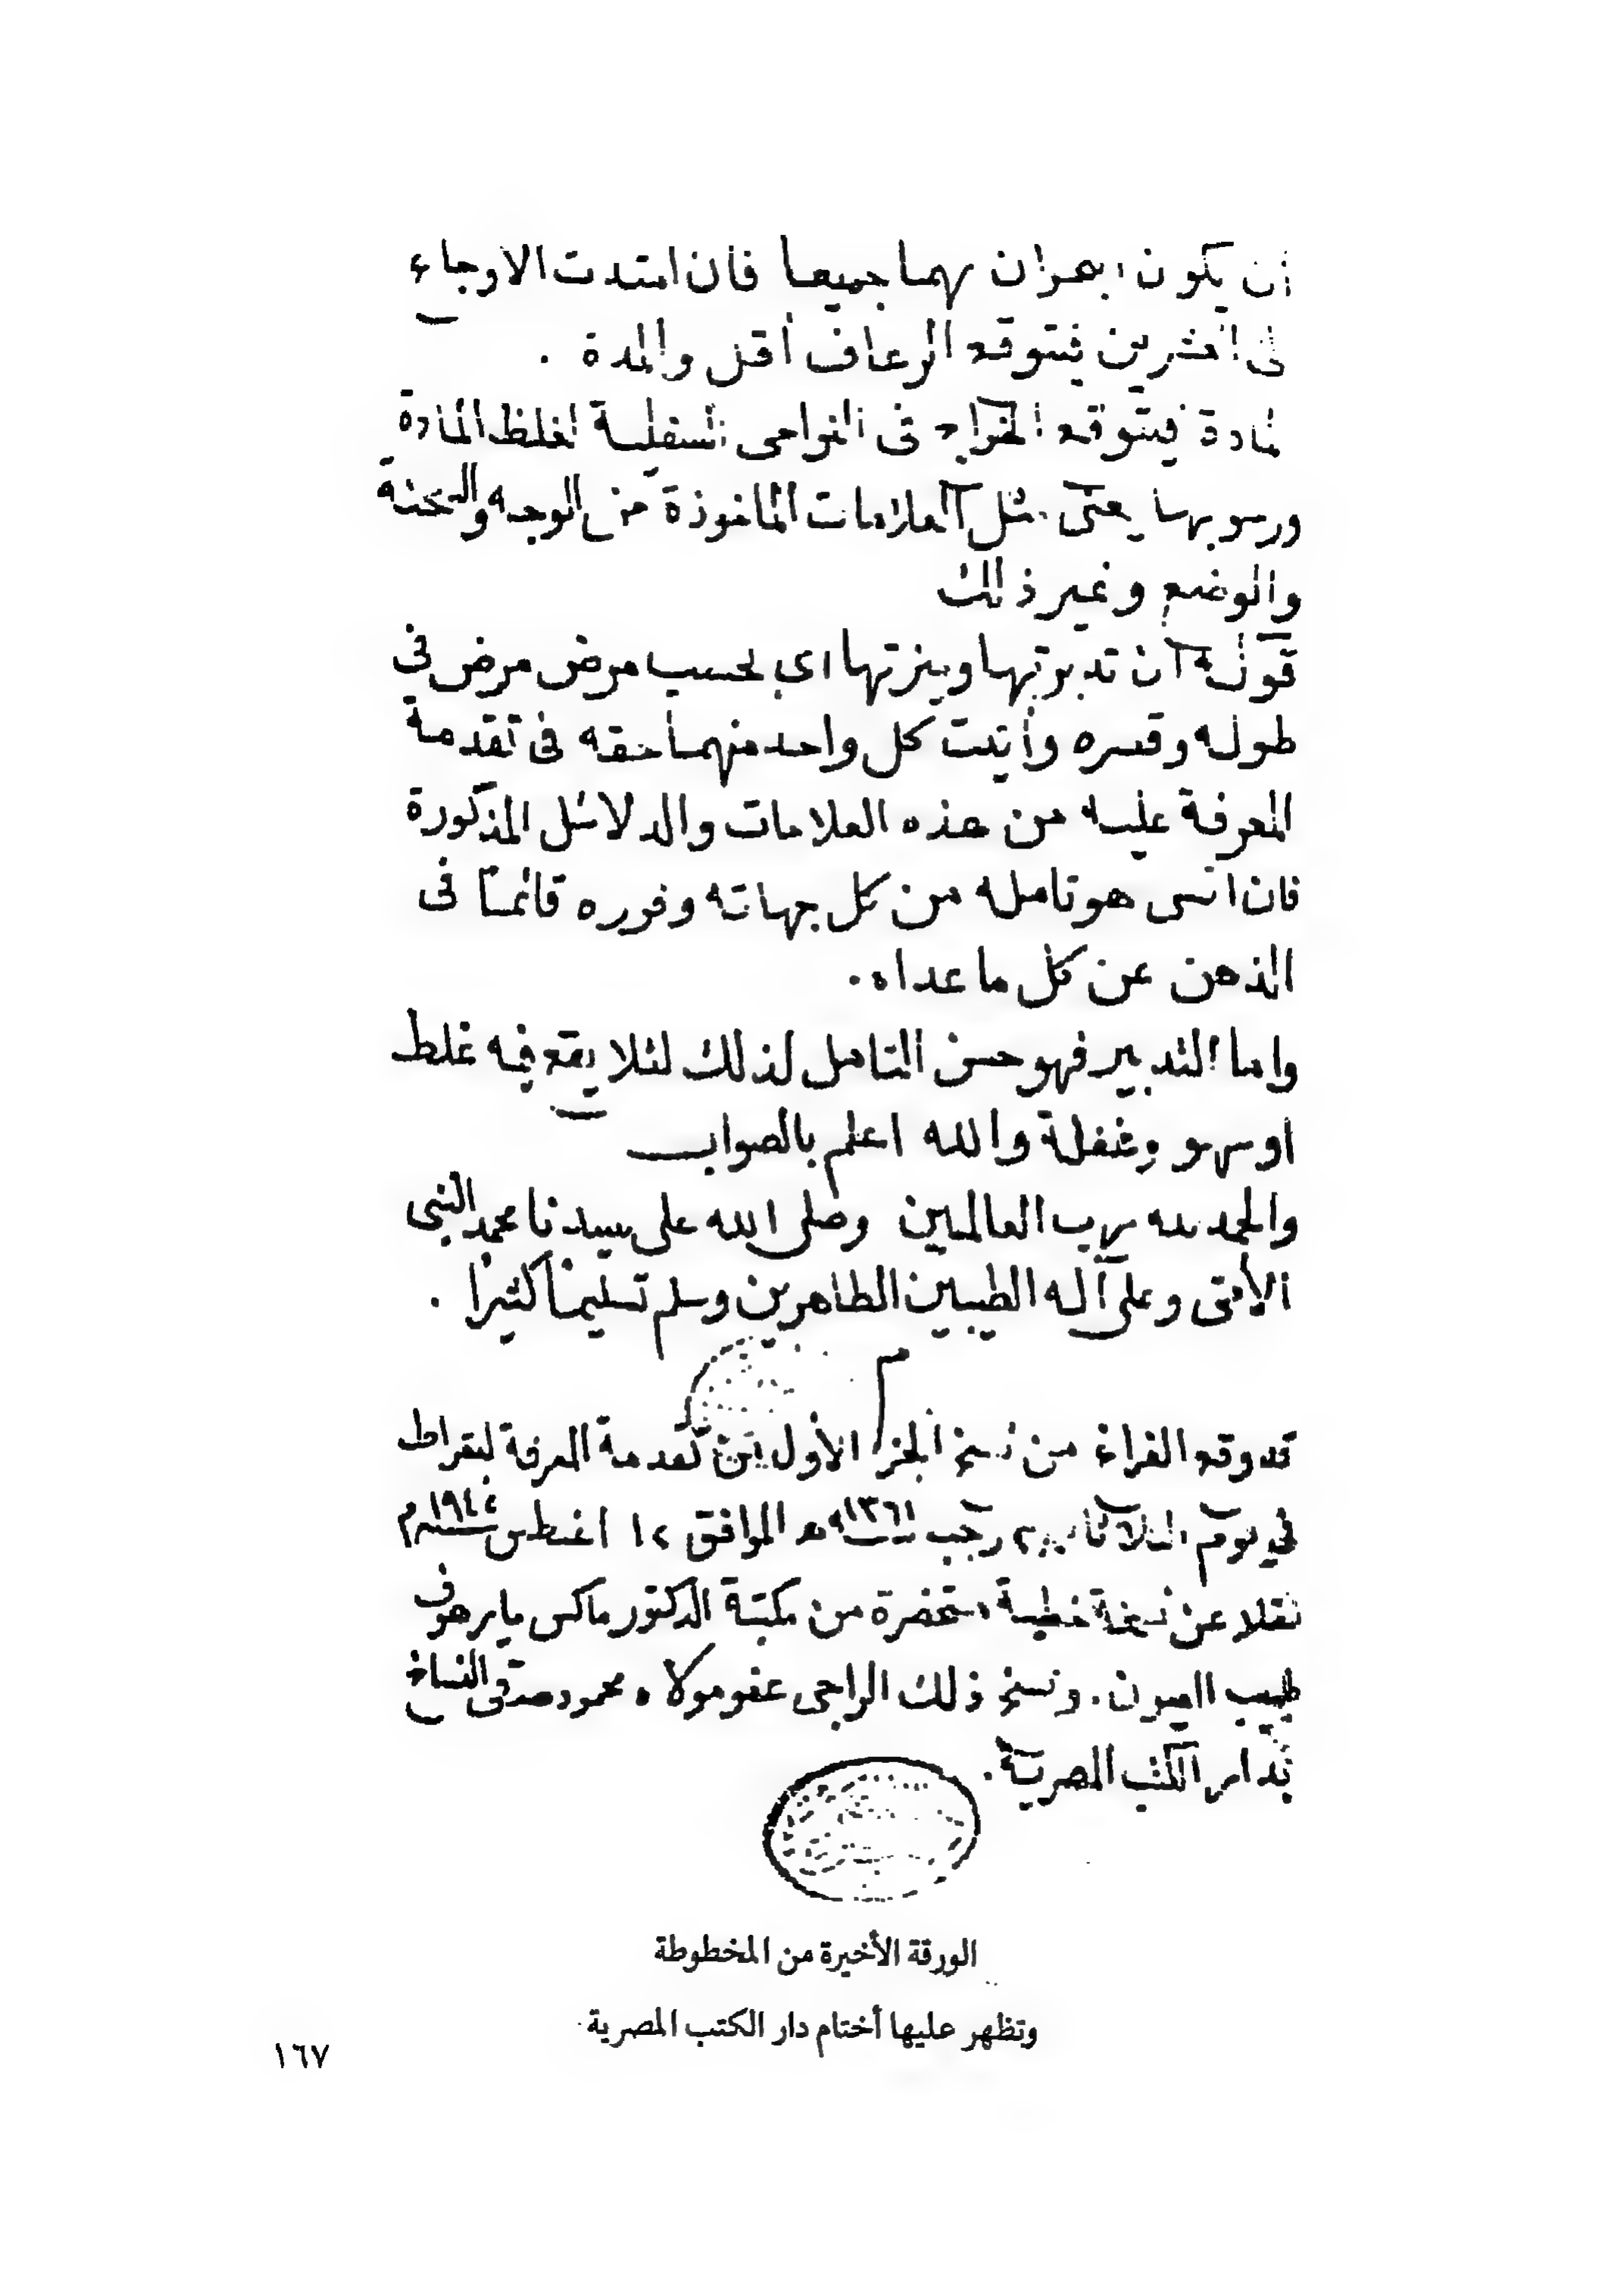 أن يكون البحران بهما جميعا فان امتدت الاوجاع
الى العشرين فيتوقع الرعاف أقل والمدة .
المادة فيتوقع الخراج فى النواحى السفلية لغلظ المادة
ورسوبها يعنى مثل العلامات المأخوذة من الوجه والسحنة
والوضع وغير ذلك
قوله أن تدبرتها وميزتها اى بحسب مرض مرض فى
طوله وقصره وأتيت كل واحد منهما حقه فى تقدمة
المعرفة عليه من هذه العلامات والدلائل المذكورة
فان هو تامله من كل جهاته وغوره قائما فى
الذهن عن كل ما عداه.
واما التدبير فهو حسن التامل لذلك لئلا يقع فيه غلط
او سهو وغفلة والله اعلم بالصواب
والحمد لله رب العالمين وصلى الله على سيدنا محمد النبى
الأمى وعلى آله الطيبين الطاهرين وسلم تسليما كثيرا .
م
قد وقع الفراغ من نسخ الجزء الأول من تقدمة المعرفة لبقراط
في يوم الثلاثاء رجب سنة ١٣٦١ هـ الموافق ١٢ اغسطس سنة ١٩٤٢ م
نقلا عن نسخة خطية مستحضرة من مكتبة الدكتور ماكس مايرهوف
طبيب العيون. ونسخ ذلك الراجى عفو مولاه محمود صدقى النساخ
بدار الكتب المصرية.
الورقة الأخيرة من المخطوطة
وتظهر عليها أختام دار الكتب المصرية
١٦٧